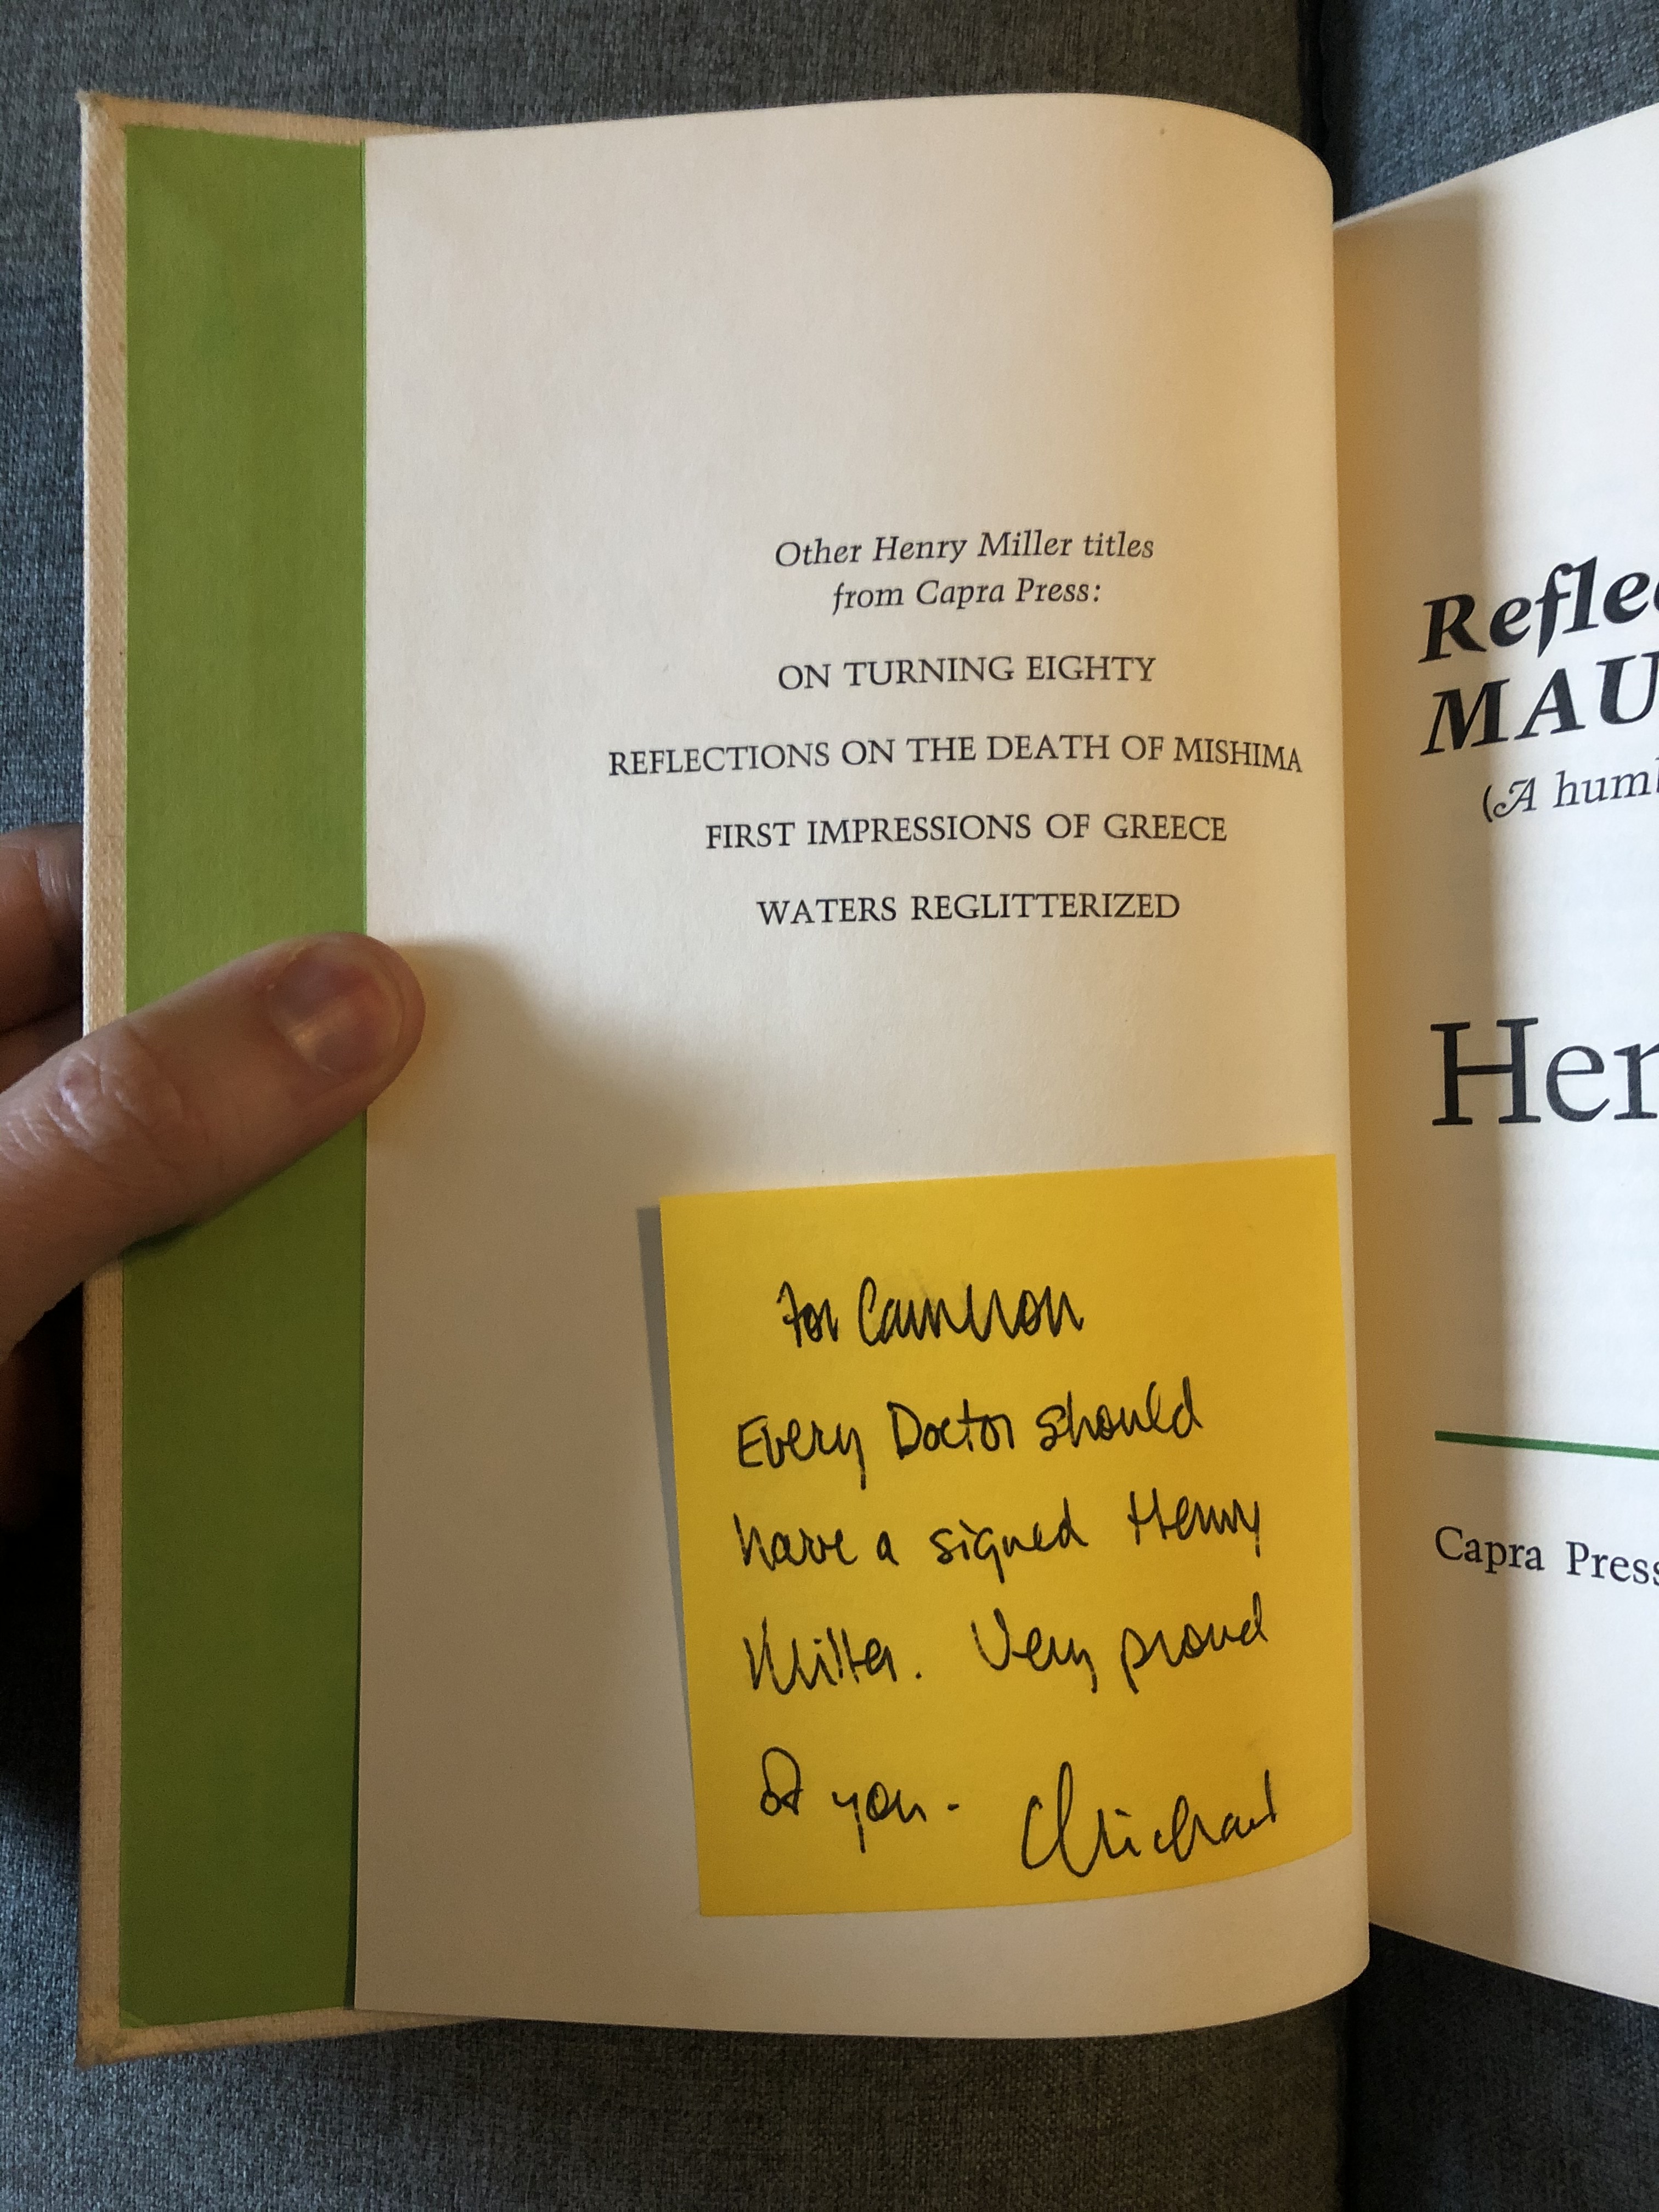 Other Henry Miller titles
from Capra Press:
ON TURNING EIGHTY
REFLECTIONS ON THE DEATH OF MISHIMA
FIRST IMPRESSIONS OF GREECE
WATERS REGLITTERIZED
For Cameron
Every Doctor should
have a signed Henry
Miller. Very proud
of you - Michael
Refle
MAU
(A humb
Hen
Capra Press